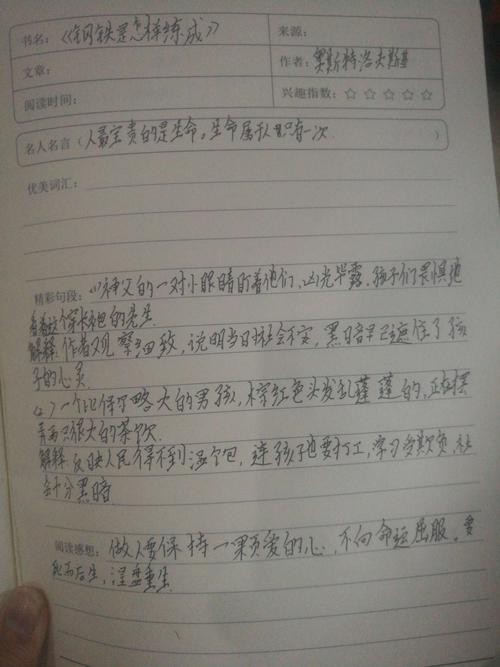 书名：《钢铁是怎样练成》
来源：
文章：
作者：奥斯特洛夫斯基
阅读时间：
兴趣指数：☆ ☆ ☆ ☆ ☆
名人名言（人最宝贵的是生命。生命属于人只有一次 ）
优美词汇：
精彩句段：(1)神父的一对小眼睛盯着他们，凶光毕露，孩子们畏惧地
看着这个穿长袍的先生
解释：作者观察细致，说明当时社会不安，黑暗早已遮住了孩
子的心灵
(2)一个比保尔略大的男孩，棕红色头发乱蓬蓬的，正在摆
弄两只很大的茶炊
解释 反映人民得不到温饱，连孩子也要打工，
会十分黑暗
阅读感想：做人要保持一颗爱的心，不向命运屈服。要
死而后生，涅盘重生